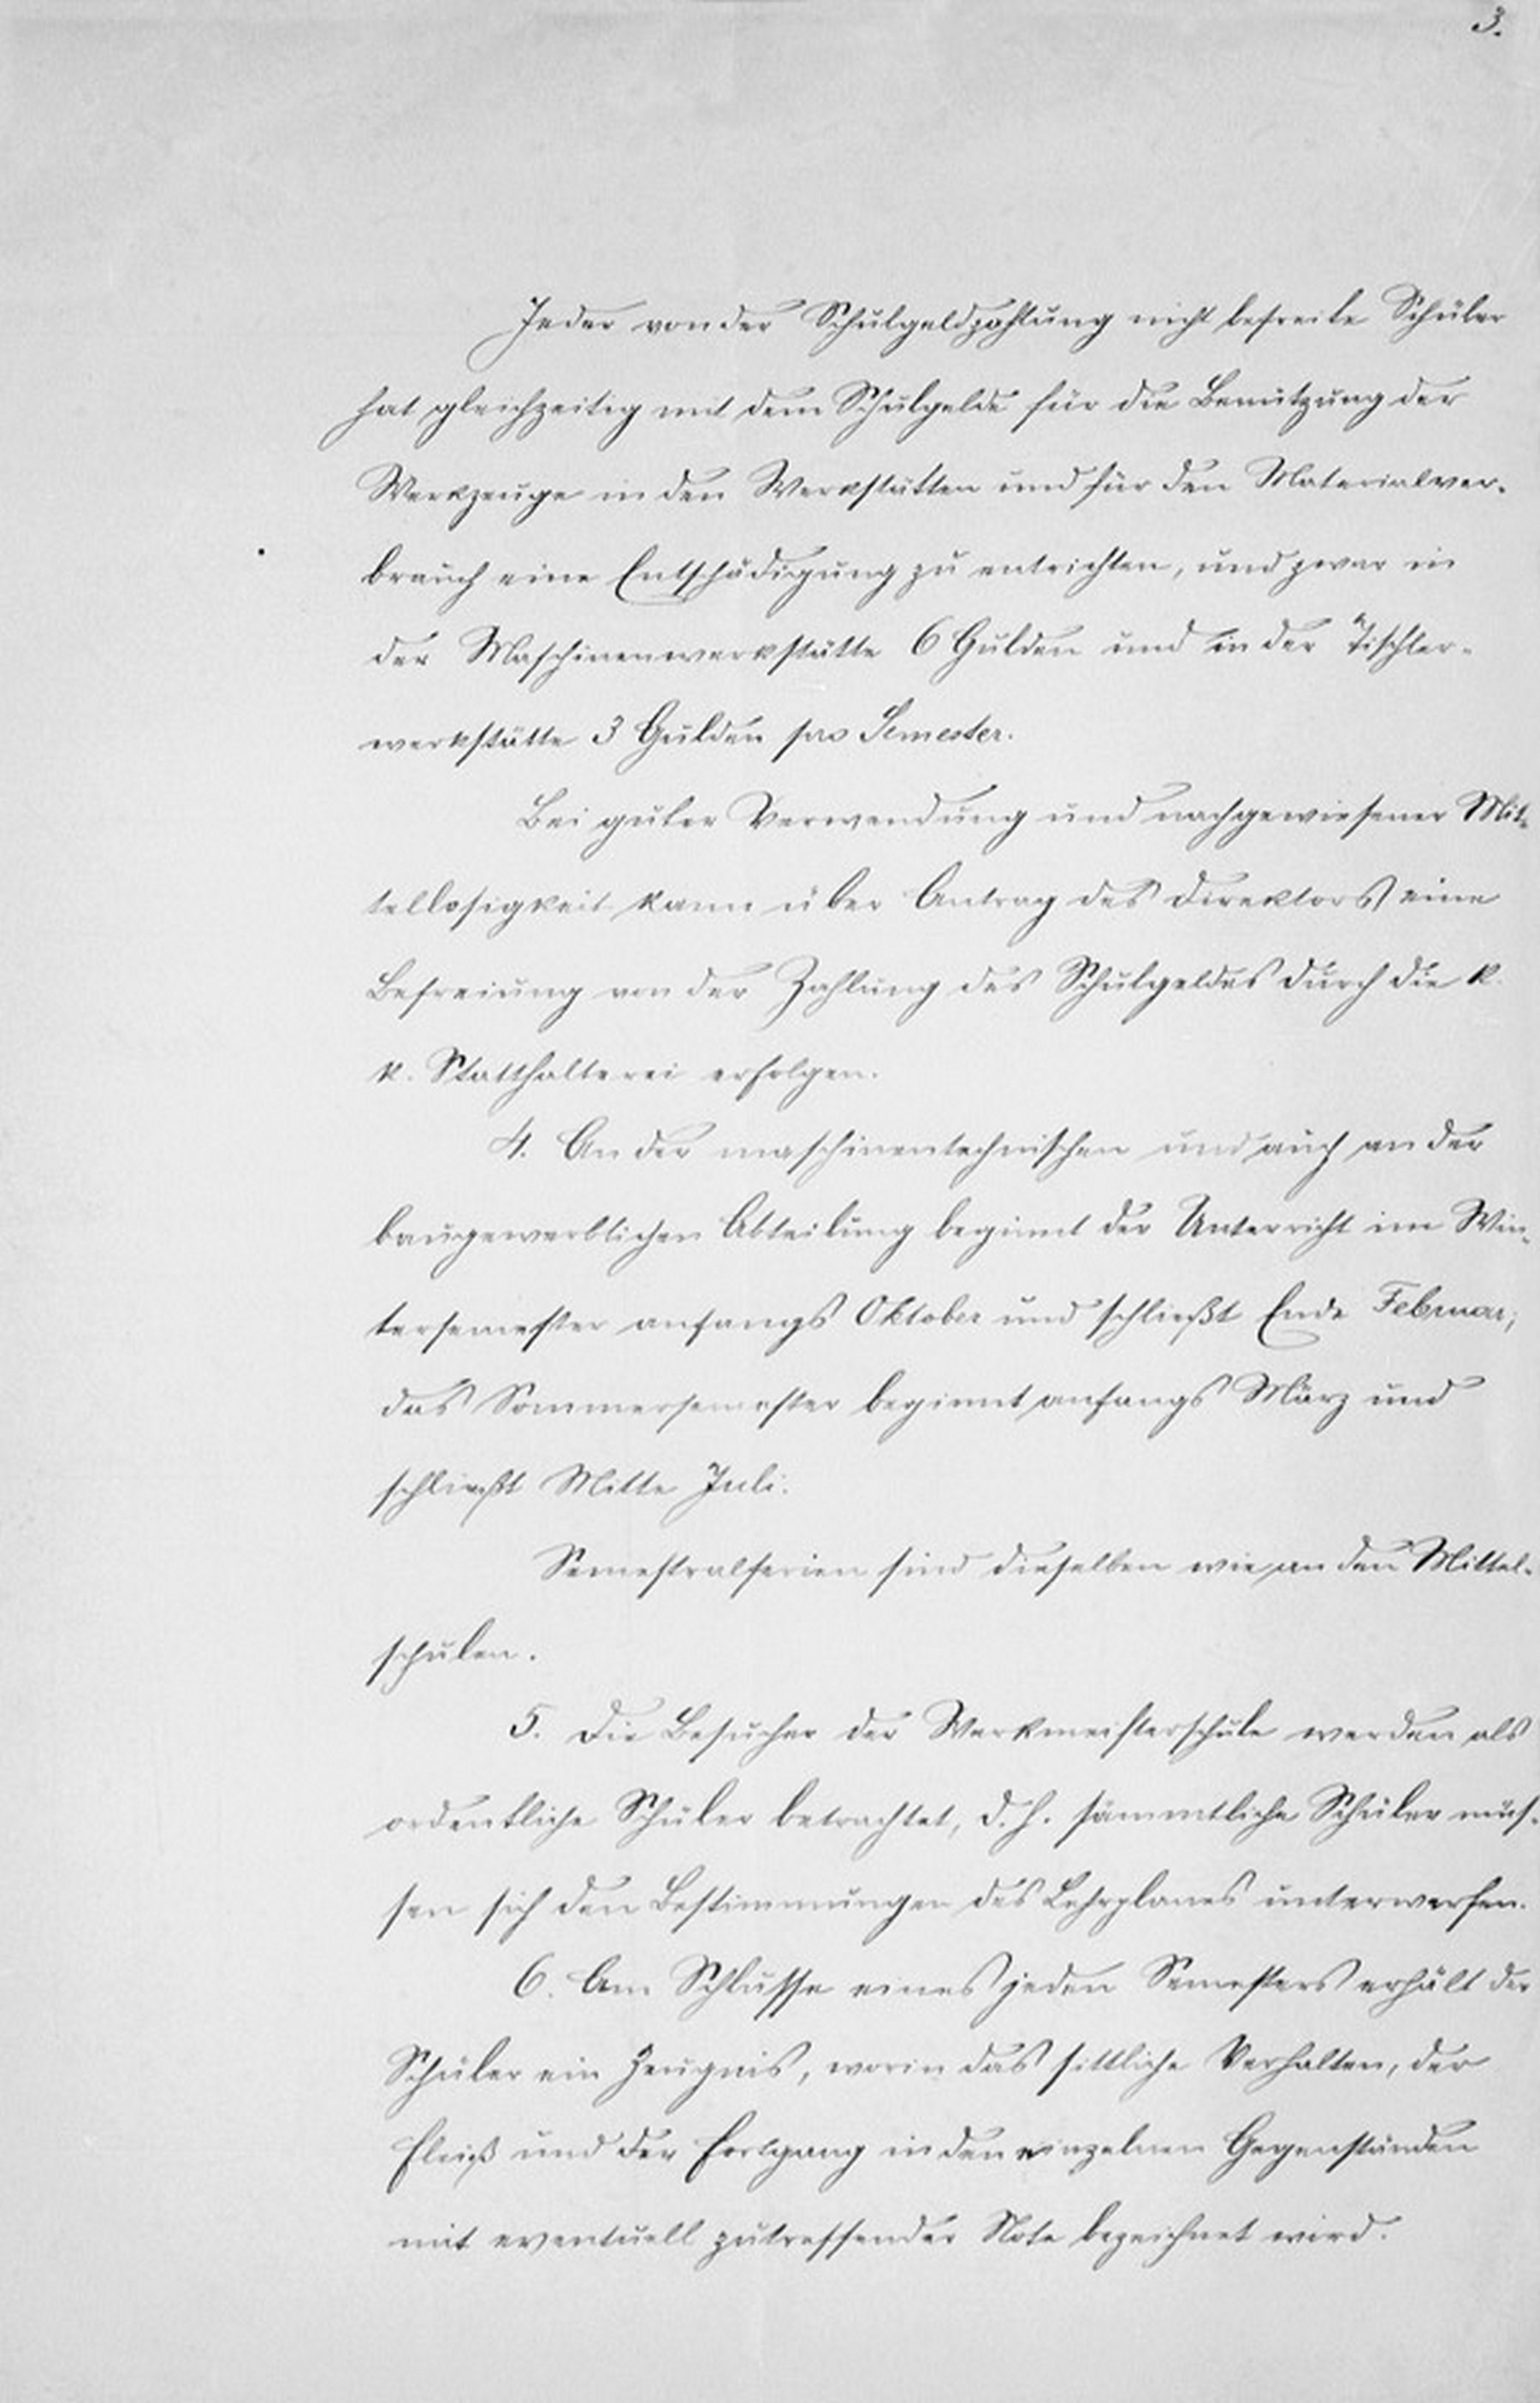 3.
Jeder von der Schulgeldzahlung nicht befreite Schüler
hat gleichzeitig mit dem Schulgelde für die Benützung der
Werkzeuge in den Werkstätten und für den Materialver-
brauch eine Entschädigung zu entrichten, und zwar in
der Maschinenwerkstätte 6 Gulden und in der Tischler-
werkstätte 3 Gulden pro Semester.
Bei guter Verwendung und nachgewiesener Mit-
tellosigkeit kann über Antrag des Direktors eine
Befreiung von der Zahlung des Schulgeldes durch die k.
k. Statthalterei erfolgen.
4. An der maschinentechnischen und auch an der
baugewerblichen Abteilung beginnt der Unterricht im Win-
tersemester anfangs Oktober und schließt Ende Februar;
das Sommersemester beginnt anfangs März und
schließt Mitte Juli.
Semestralferien sind dieselben wie an den Mittel-
schulen.
5. Die Besucher der Werkmeisterschule werden als
ordentliche Schüler betrachtet, d. h. sämmtliche Schüler müs-
sen sich den Bestimmungen des Lehrplanes unterwerfen.
6. Am Schlusse eines jeden Semesters erhält der
Schüler ein Zeugnis, worin das sittliche Verhalten, der
Fleiß und der Fortgang in den einzelnen Gegenständen
mit eventuell zutreffender Note bezeichnet wird.